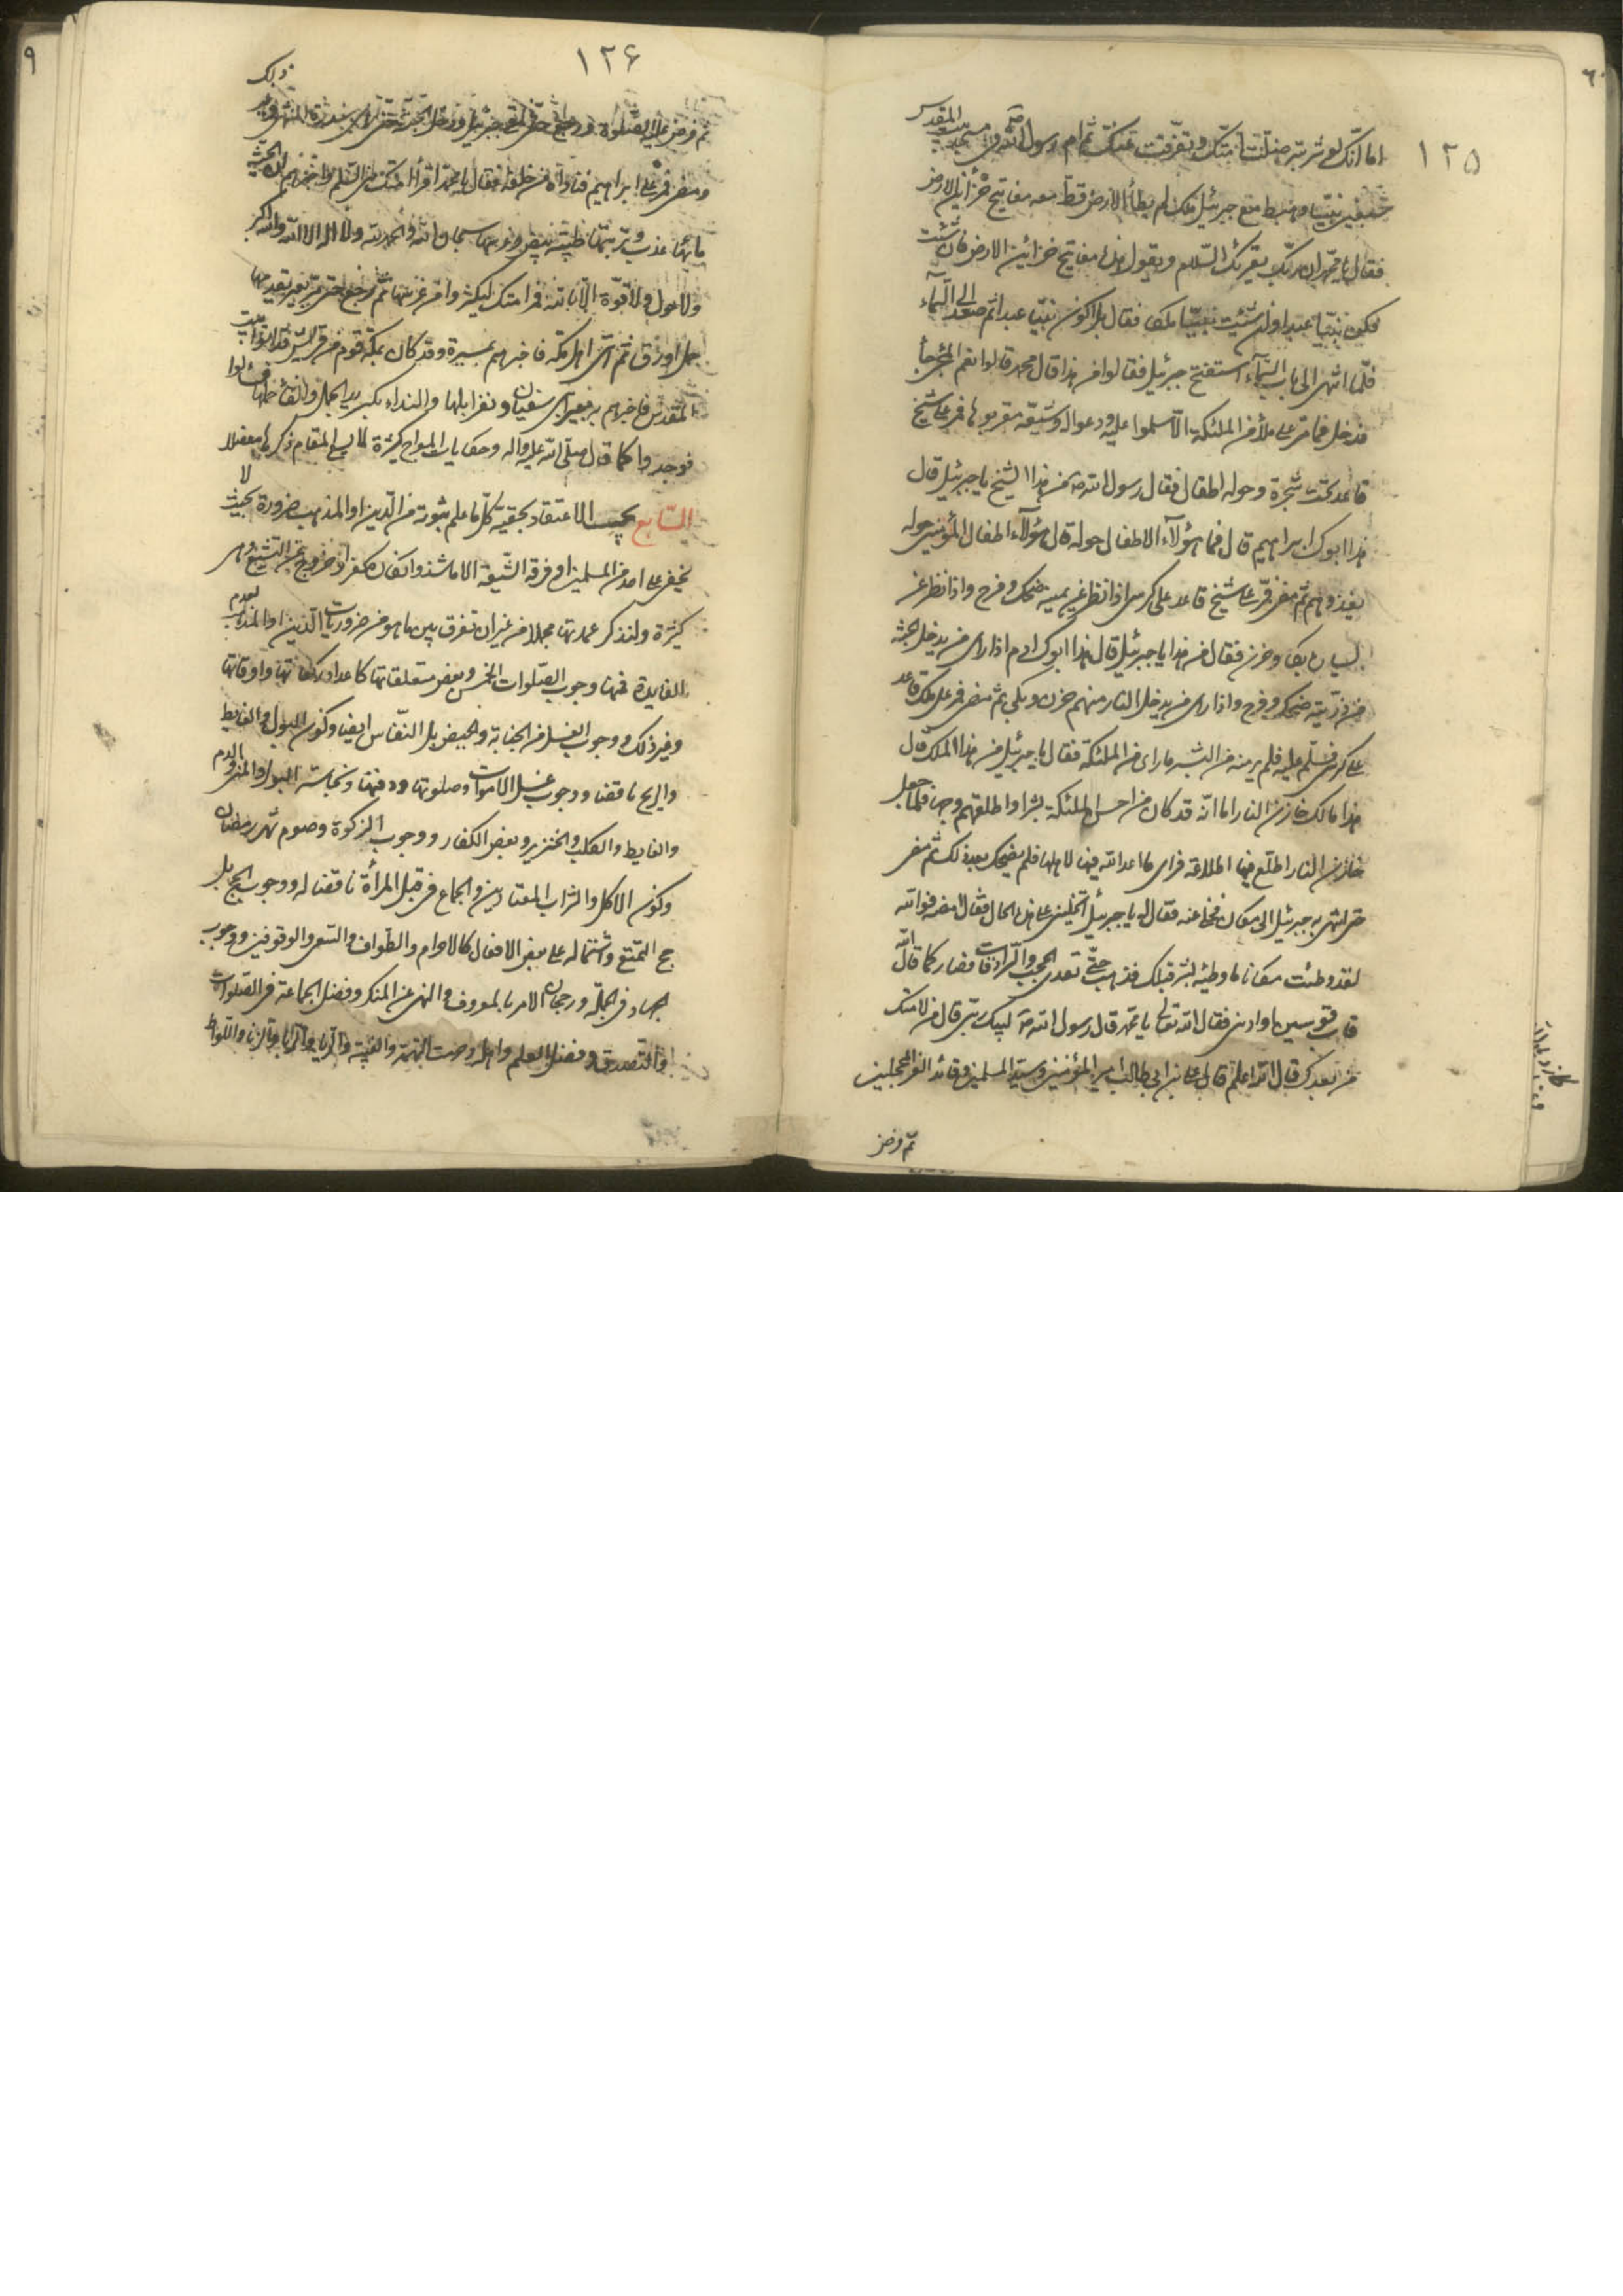 ١٢٥
اما انّك لو شربته ضلّت امّتك وتفرّقت عنك ثم امّ رسول الله ص في مسجد بيت المقدس
بسبعين نبيّا وهبط مع جبرئيل ملك لم يطأ الارض قط معه مفاتيح خزائن الارض
فقال يا محمّد ان ربّك يقرئك السّلام ويقول هذه مفاتيح خزائن الارض فان شئت
فكن نبيّا عبدا وان شئت نبيّا ملكا فقال بل اكون نبيّا عبدا ثم صعد الى السّماء
فلمّا انتهى الى باب السّماء استفتح جبرئيل فقالوا من هذا قال محمد قالوا نعم المجئ جاء
فدخل فما مرّ على ملأ من الملئكة الّا سلموا عليه ودعوا له وشيّعه مقربوها فمر على شيخ
قاعد تحت شجرة وحوله اطفال فقال رسول الله ص من هذا الشيخ يا جبرئيل قال
هذا ابوك ابراهيم قال فما هؤلاء الاطفال حوله قال هؤلاء اطفال المؤمنين حوله
يغذوهم ثم مضى فمرّ على شيخ قاعد على كرسي اذا نظر عن يمينه ضحك وفرح واذا نظر عن
يساره بكى وحزن فقال من هذا يا جبرئيل قال هذا ابوك ادم اذا راى من يدخل الجنة
من ذريته ضحك وفرح واذا راى من يدخل النار منهم حزن وبكى ثم مضى فمر على ملك قاعد
على كرسي فسلّم عليه فلم ير منه من البشر ما راى من الملئكة فقال يا جبرئيل من هذا الملك قال
هذا مالك خازن النار اما انّه قد كان من احسن الملئكة بشرا واطلقهم وجها فلما جعل
خازن النار اطلع فيها اطلاعة فراى ما اعد الله فيها لاهلها فلم يضحك بعد ذلك ثم مضى
حتى انتهى به جبرئيل الى مكان فخلى عنه فقال له يا جبرئيل اتخليني على هذه الحال فقال امضه فوالله
لقد وطئت مكانا ما وطئه بشر قبلك فذهب حتّى تعدى الحجب والسّرادقات فصار كما قال الله
قاب قوسين او ادنى فقال الله تعالى يا محمّد قال رسول الله ص لبيك ربّي قال من لامتك
من بعدك قال الله اعلم قال علي بن ابي طالب امير المؤمنين وسيد المسلمين وقائد الغر المحجلين
ثم فرض
١٢۶
ثم فرض عليه الصّلوة ورجع حتى لقي جبرئيل ودخل الجنّة حتى راى سدرة المنتهى وغير ذلك
ومضى فمر على ابراهيم فناداه من خلفه فقال يا محمّد اقرأ امتك مني السّلم واخبرهم ان الجنّة
مائها عذب وتربتها طيّبة بيض وغرسها سبحان الله والحمد لله ولا اله الا الله والله اكبر
ولا حول ولا قوّة الّا بالله فمر امتك فليكثر وا من غرسها ثم رجع حتى مرّ بعير يقدمها
جمل اورق ثم اتى اهل مكه فاخبرهم بمسيره وقد كان بمكة قوم من قريش قد اتوا بيت
المقدس فاخبرهم بعير ابي سفيان ونفر ابلها والنداء بكسر يد الجمل والقاء حملها فقالوا
فوجدوا كما قال صلّى الله عليه واله وحكايات المعراج كثيرة لا يسع المقام ذكرها مفصلا
السّابع يجب الاعتقاد بحقيّة كلّ ما علم ثبوته من الدّين او المذهب ضرورة بحيث لا
يخفى على احد من المسلمين او فرقه الشّيعة الا ما شذ وانكاره كفر او خروج عن التشيع وهي
كثيرة ولنذكر عمدتها مجملا من غير ان نفرق بين ما هو من ضروريات الدّين او المذهب لعدم
الفايدة فمنها وجوب الصّلوات الخمس وبعض متعلقاتها كاعداد ركعاتها واوقاتها
وغير ذلك ووجوب الغسل من الجنابة والحيض بل النفّاس ايضا وكون البول والغايط
والريح ناقضا ووجوب غسل الاموات وصلوتها ودفنها ونجاسة البول والمني والدم
والغايط والكلب والخنزير وبعض الكفار ووجوب الزكوة وصوم شهر رمضان
وكون الاكل والشراب المعتادين والجماع في قبل المرأة ناقضا له ووجوب الحج بل
حج التمتع واشتماله على بعض الافعال كالاحرام والطواف والسّعي والوقوفين ووجوب
الجهاد في الجملة ورجحان الامر بالمعروف والنهي عن المنكر وفضل الجماعة في الصّلوات
والتّصدق وفضل العلم واهله وحرمت النميمة والغيبة والزنا واللواط